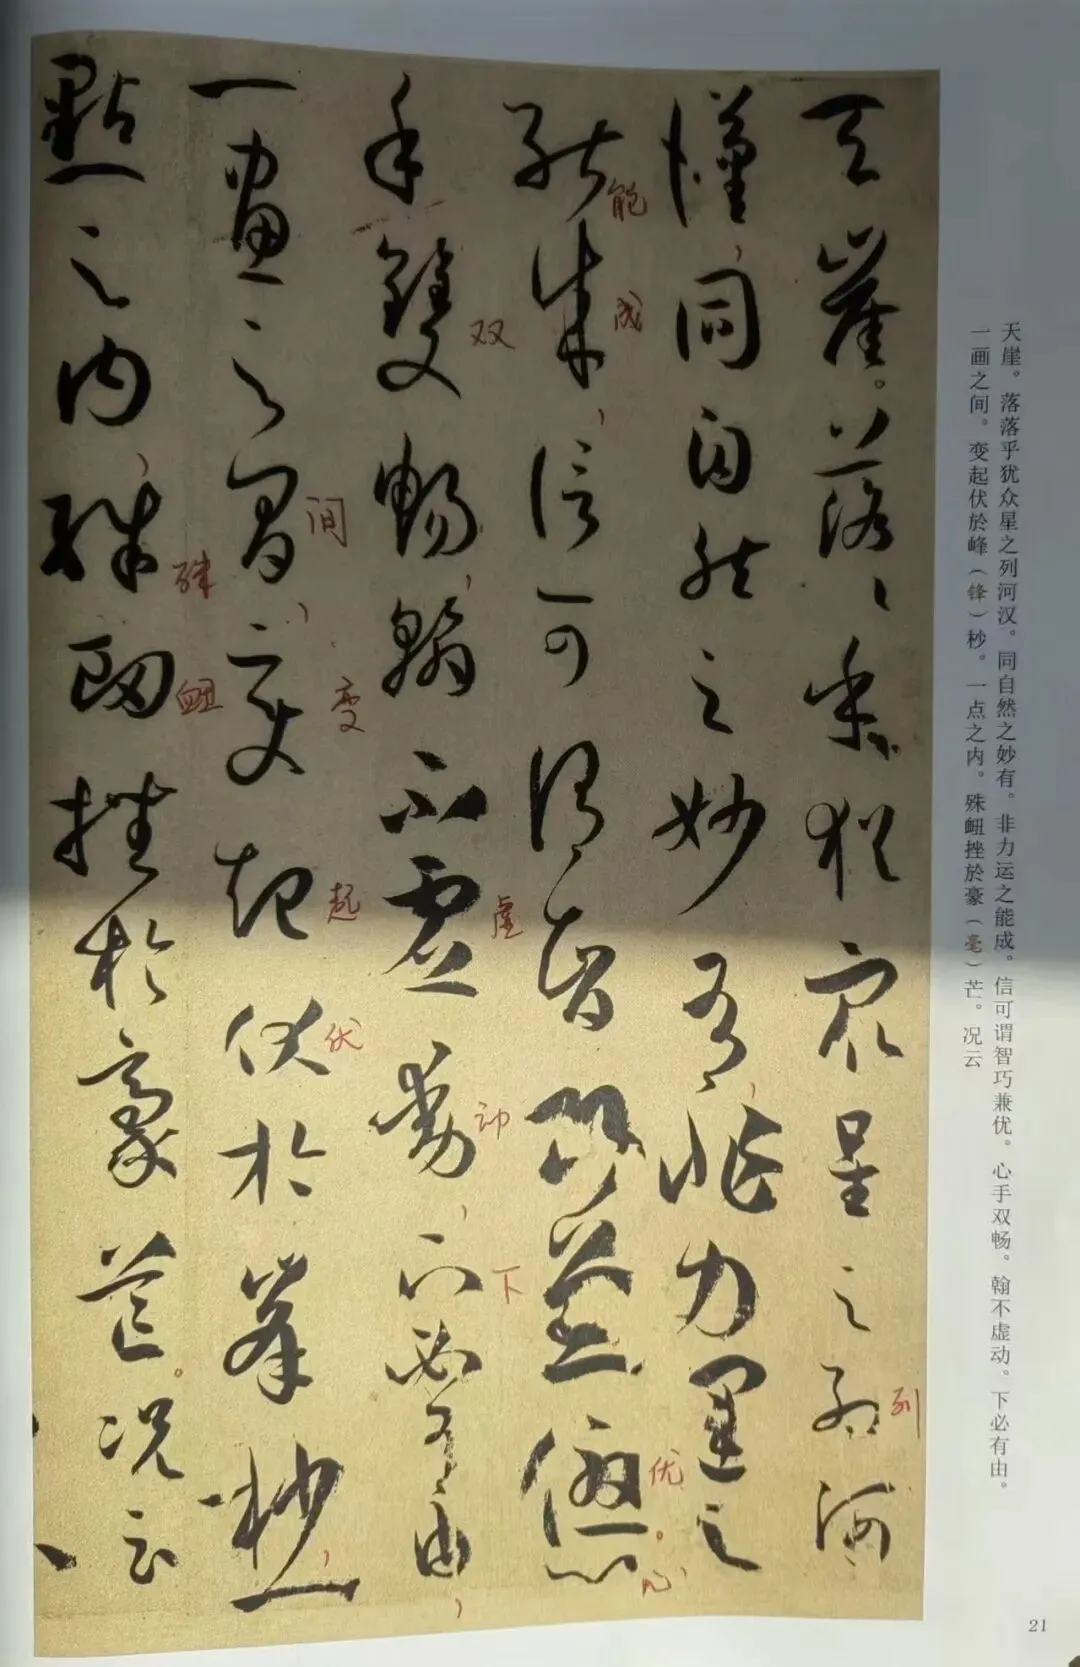 天崖。落落乎犹众星之列河汉。同自然之妙有。非力运之能成。信可谓智巧兼优。心手双畅。翰不虚动。下必有由。
一画之间。变起伏於峰（锋）秒。一点之内。殊衄挫於豪（毫）芒。况云
天崖。落〻乎猶衆星之列河
漢同自然之妙有非力運之
能成信可謂智巧兼優心
手雙暢翰不虛動下必有由
一畫之間變起伏於峯杪一
點之内殊衄挫於豪芒。況云
列
能
成
优
心
双
虚
动
下
间
变
起
伏
殊
衄
21